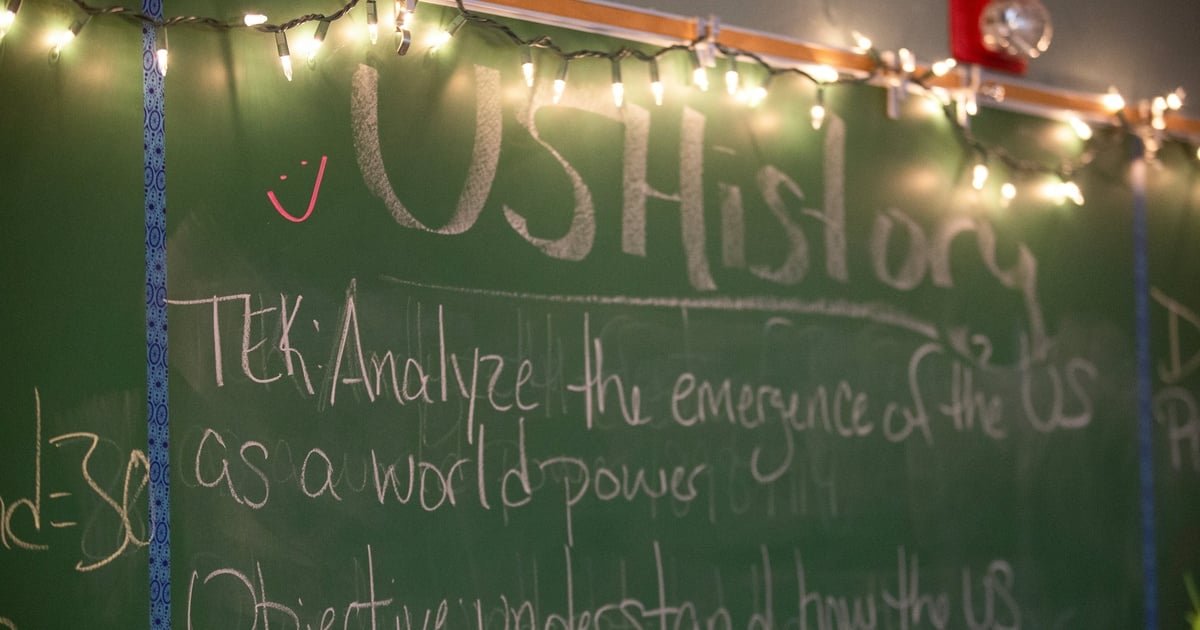 US History
TEK: Analyze the emergence of the US
as a world power
Objective: understand how the US
d=30